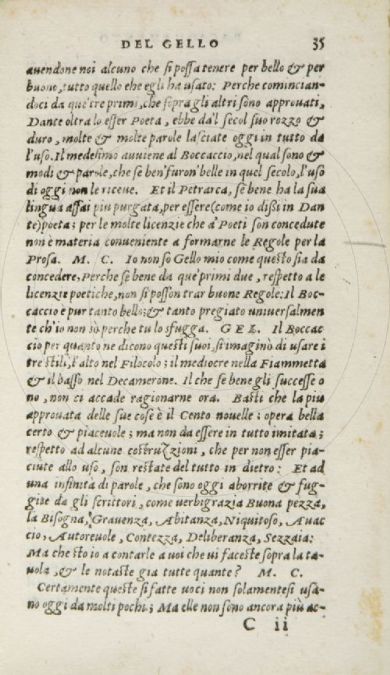 DEL GELLO 35
avendone noi alcuno che si possa tenere per bello & per
buono, tutto quello che egli ha usato: Perche comincian-
doci da que'tre primi, che sopra gli altri sono approvati,
Dante oltra lo esser Poeta, ebbe da'l secol suo rozzo &
duro, molte & molte parole lasciate oggi in tutto da
l'uso. Il medesimo auuiene al Boccaccio, nel qual sono &
modi & parole, che se ben'furon'belle in quel secolo, l'uso
di oggi non le riceue. Et il Petrarca, se bene ha la sua
lingua assai piu purgata, per essere (come io dißi in Dan
te) poeta; per le molte licenzie che a' Poeti son concedute
non è materia conueniente a formarne le Regole per la
Prosa. M. C. Io non so Gello mio come questo sia da
concedere, Perche se bene da que'primi due, respetto a le
licenzie poetiche, non si posson trar buone Regole: Il Boc-
caccio è pur tanto bello; & tanto pregiato uniuersalmen
te ch'io non sò perche tu lo sfugga. GEL. Il Boccac
cio per quanto ne dicono questi suoi, si imaginò di usare i
tre stili, l'alto nel Filocolo; il mediocre nella Fiammetta
& il basso nel Decamerone. Il che se bene gli successe o
no, non ci accade ragionarne ora. Basti che la piu
approuata delle sue cose è il Cento nouelle; opera bella
certo & piaceuole; ma non da essere in tutto imitata;
respetto ad alcune costruzzioni, che per non esser pia-
ciute allo uso, son restate del tutto in dietro: Et ad
una infinità di parole, che sono oggi aborrite & fug-
gite da gli scrittori, come uerbigrazia Buona pezza,
la Bisogna, Grauenza, Abitanza, Niquitoso, Auac
cio, Autoreuole, Contezza, Deliberanza, Sezzaia:
Ma che stò io a contarle a uoi che ui faceste sopra la ta-
uola, & le notaste gia tutte quante? M. C.
Certamente queste si fatte uoci non solamentesi usa-
no oggi da molti pochi; Ma elle non sono ancora più ac-
C ii